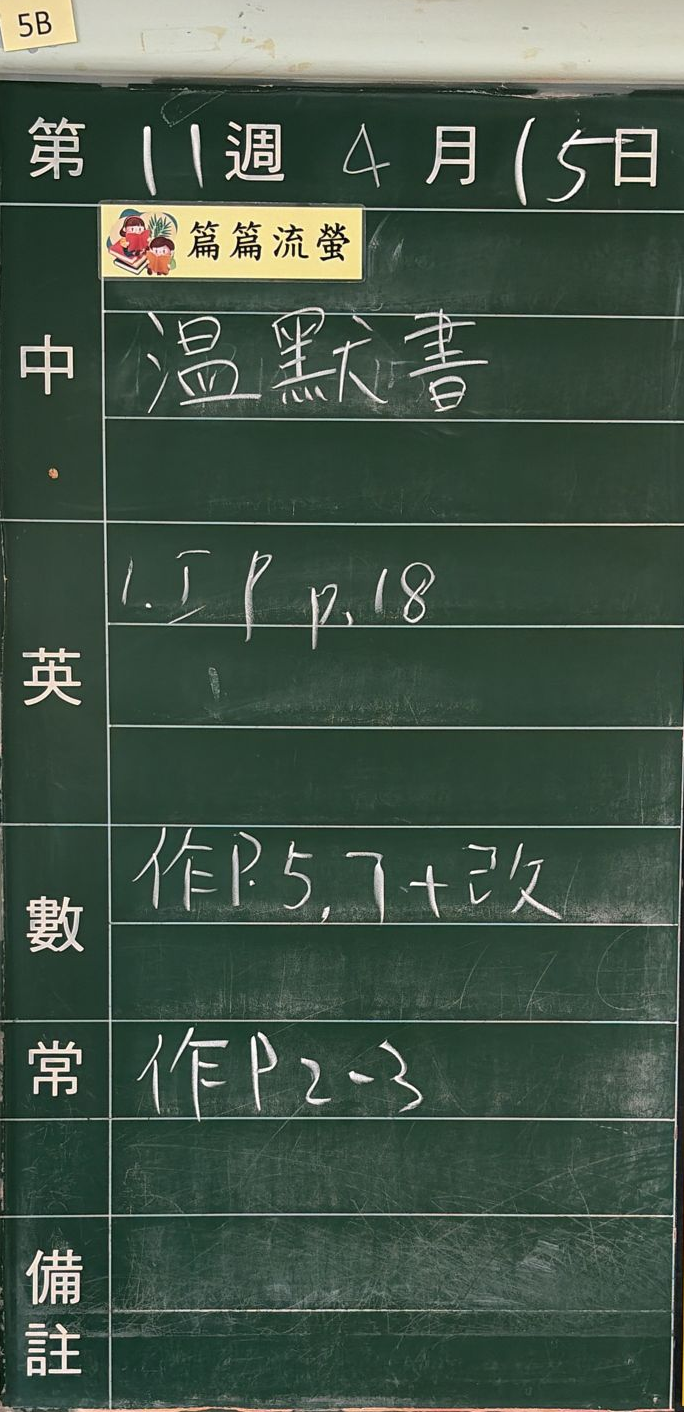 5B
第 11 週 4 月 15 日
篇篇流螢
中
温默書
英
1. IP p.18
數
作P.5,7+改
常
作P2-3
備註